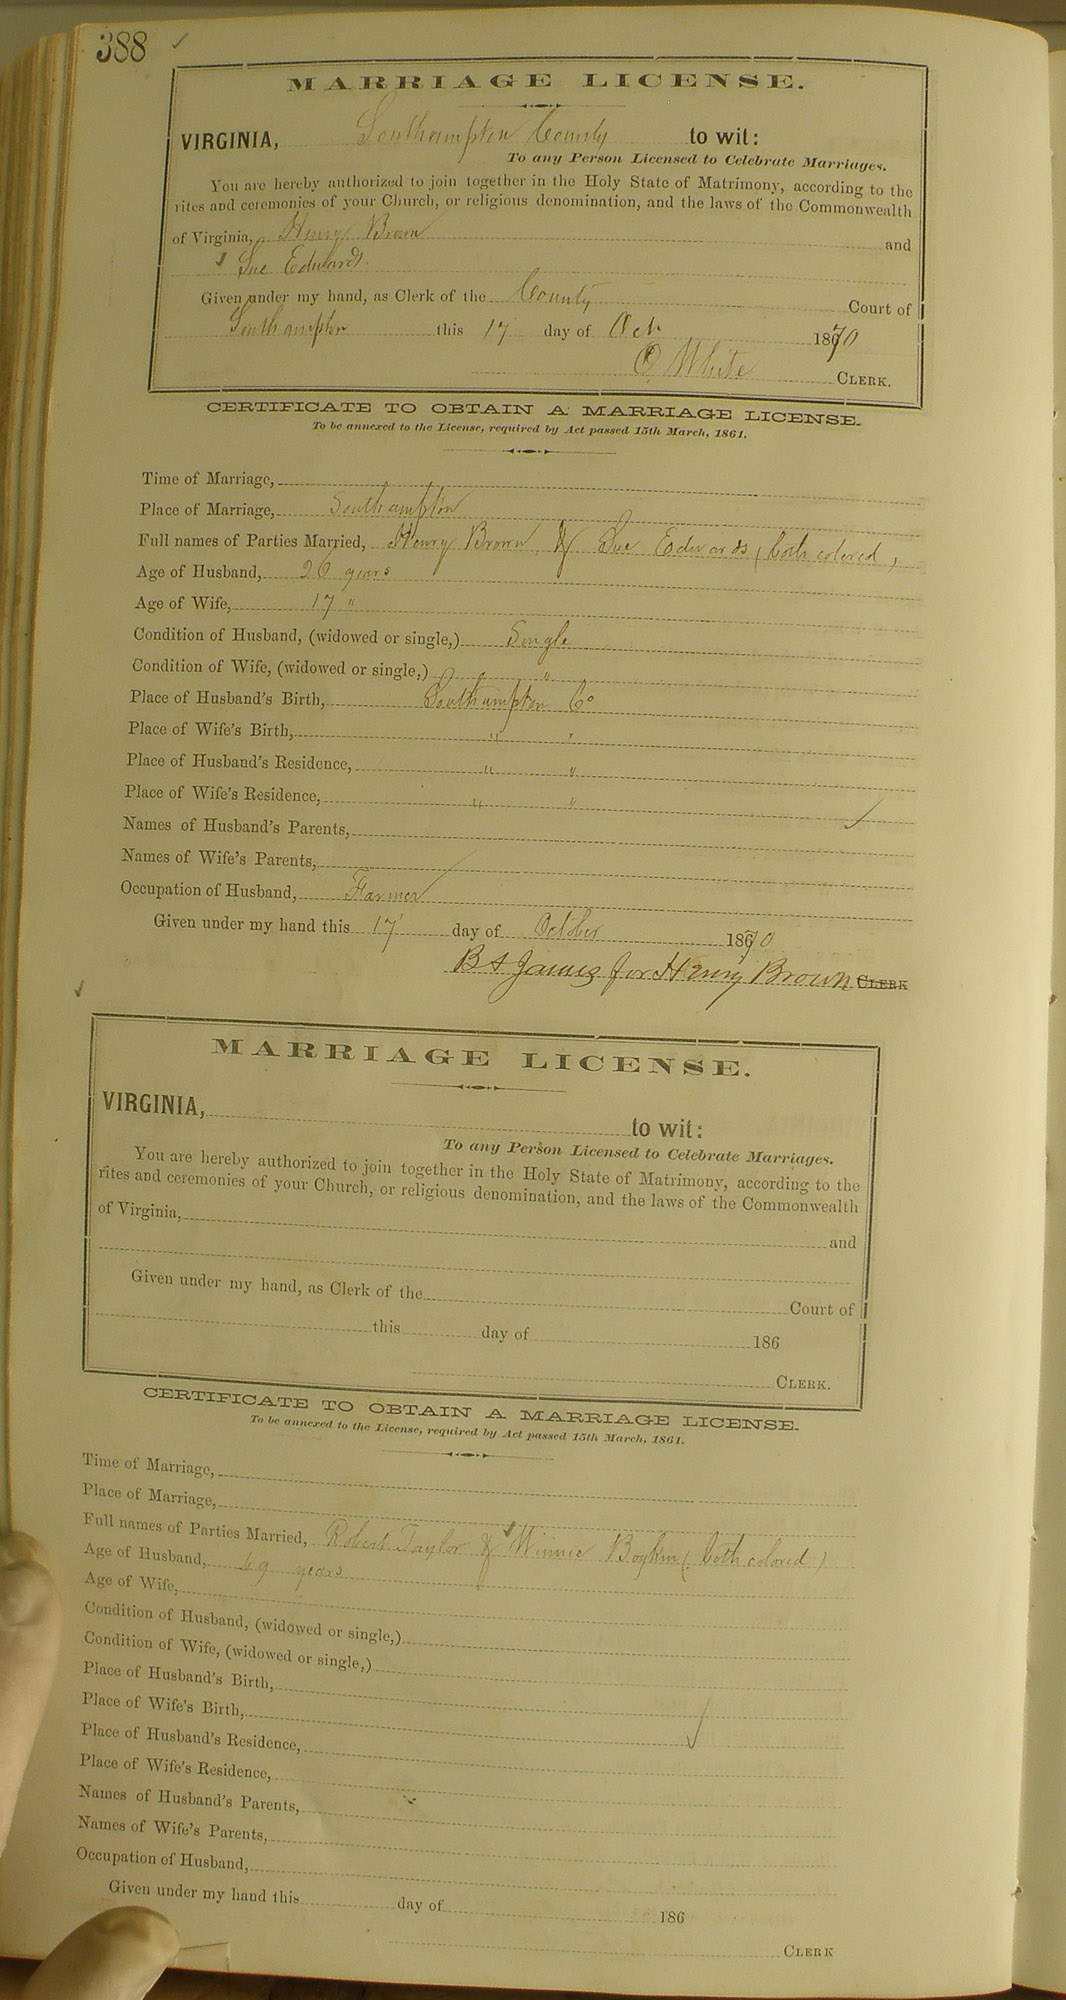 388
MARRIAGE LICENSE.
VIRGINIA, Southampton County to wit:
To any Person Licensed to Celebrate Marriages.
You are hereby authorized to join together in the Holy State of Matrimony, according to the
rites and ceremonies of your Church, or religious denomination, and the laws of the Commonwealth
of Virginia, Henry Brown and
Sue Edwards.
Given under my hand, as Clerk of the County Court of
Southampton this 17 day of Oct 1870
O White CLERK.
CERTIFICATE TO OBTAIN A MARRIAGE LICENSE.
To be annexed to the License, required by Act passed 15th March, 1861.
Time of Marriage,
Place of Marriage, Southampton
Full names of Parties Married, Henry Brown & Sue Edwards (both colored)
Age of Husband, 26 years
Age of Wife, 17 "
Condition of Husband, (widowed or single,) Single
Condition of Wife, (widowed or single,) "
Place of Husband's Birth, Southampton Co
Place of Wife's Birth, " "
Place of Husband's Residence, " "
Place of Wife's Residence, " "
Names of Husband's Parents,
Names of Wife's Parents,
Occupation of Husband, Farmer
Given under my hand this 17 day of October 1870
B S James for Henry Brown CLERK
MARRIAGE LICENSE.
VIRGINIA, to wit:
To any Person Licensed to Celebrate Marriages.
You are hereby authorized to join together in the Holy State of Matrimony, according to the
rites and ceremonies of your Church, or religious denomination, and the laws of the Commonwealth
of Virginia, and
Given under my hand, as Clerk of the Court of
this day of 186
CLERK.
CERTIFICATE TO OBTAIN A MARRIAGE LICENSE.
To be annexed to the License, required by Act passed 15th March, 1861.
Time of Marriage,
Place of Marriage,
Full names of Parties Married, Robert Taylor & Winnie Boykin (both colored)
Age of Husband, 69 years
Age of Wife,
Condition of Husband, (widowed or single,)
Condition of Wife, (widowed or single,)
Place of Husband's Birth,
Place of Wife's Birth,
Place of Husband's Residence,
Place of Wife's Residence,
Names of Husband's Parents,
Names of Wife's Parents,
Occupation of Husband,
Given under my hand this day of 186
CLERK